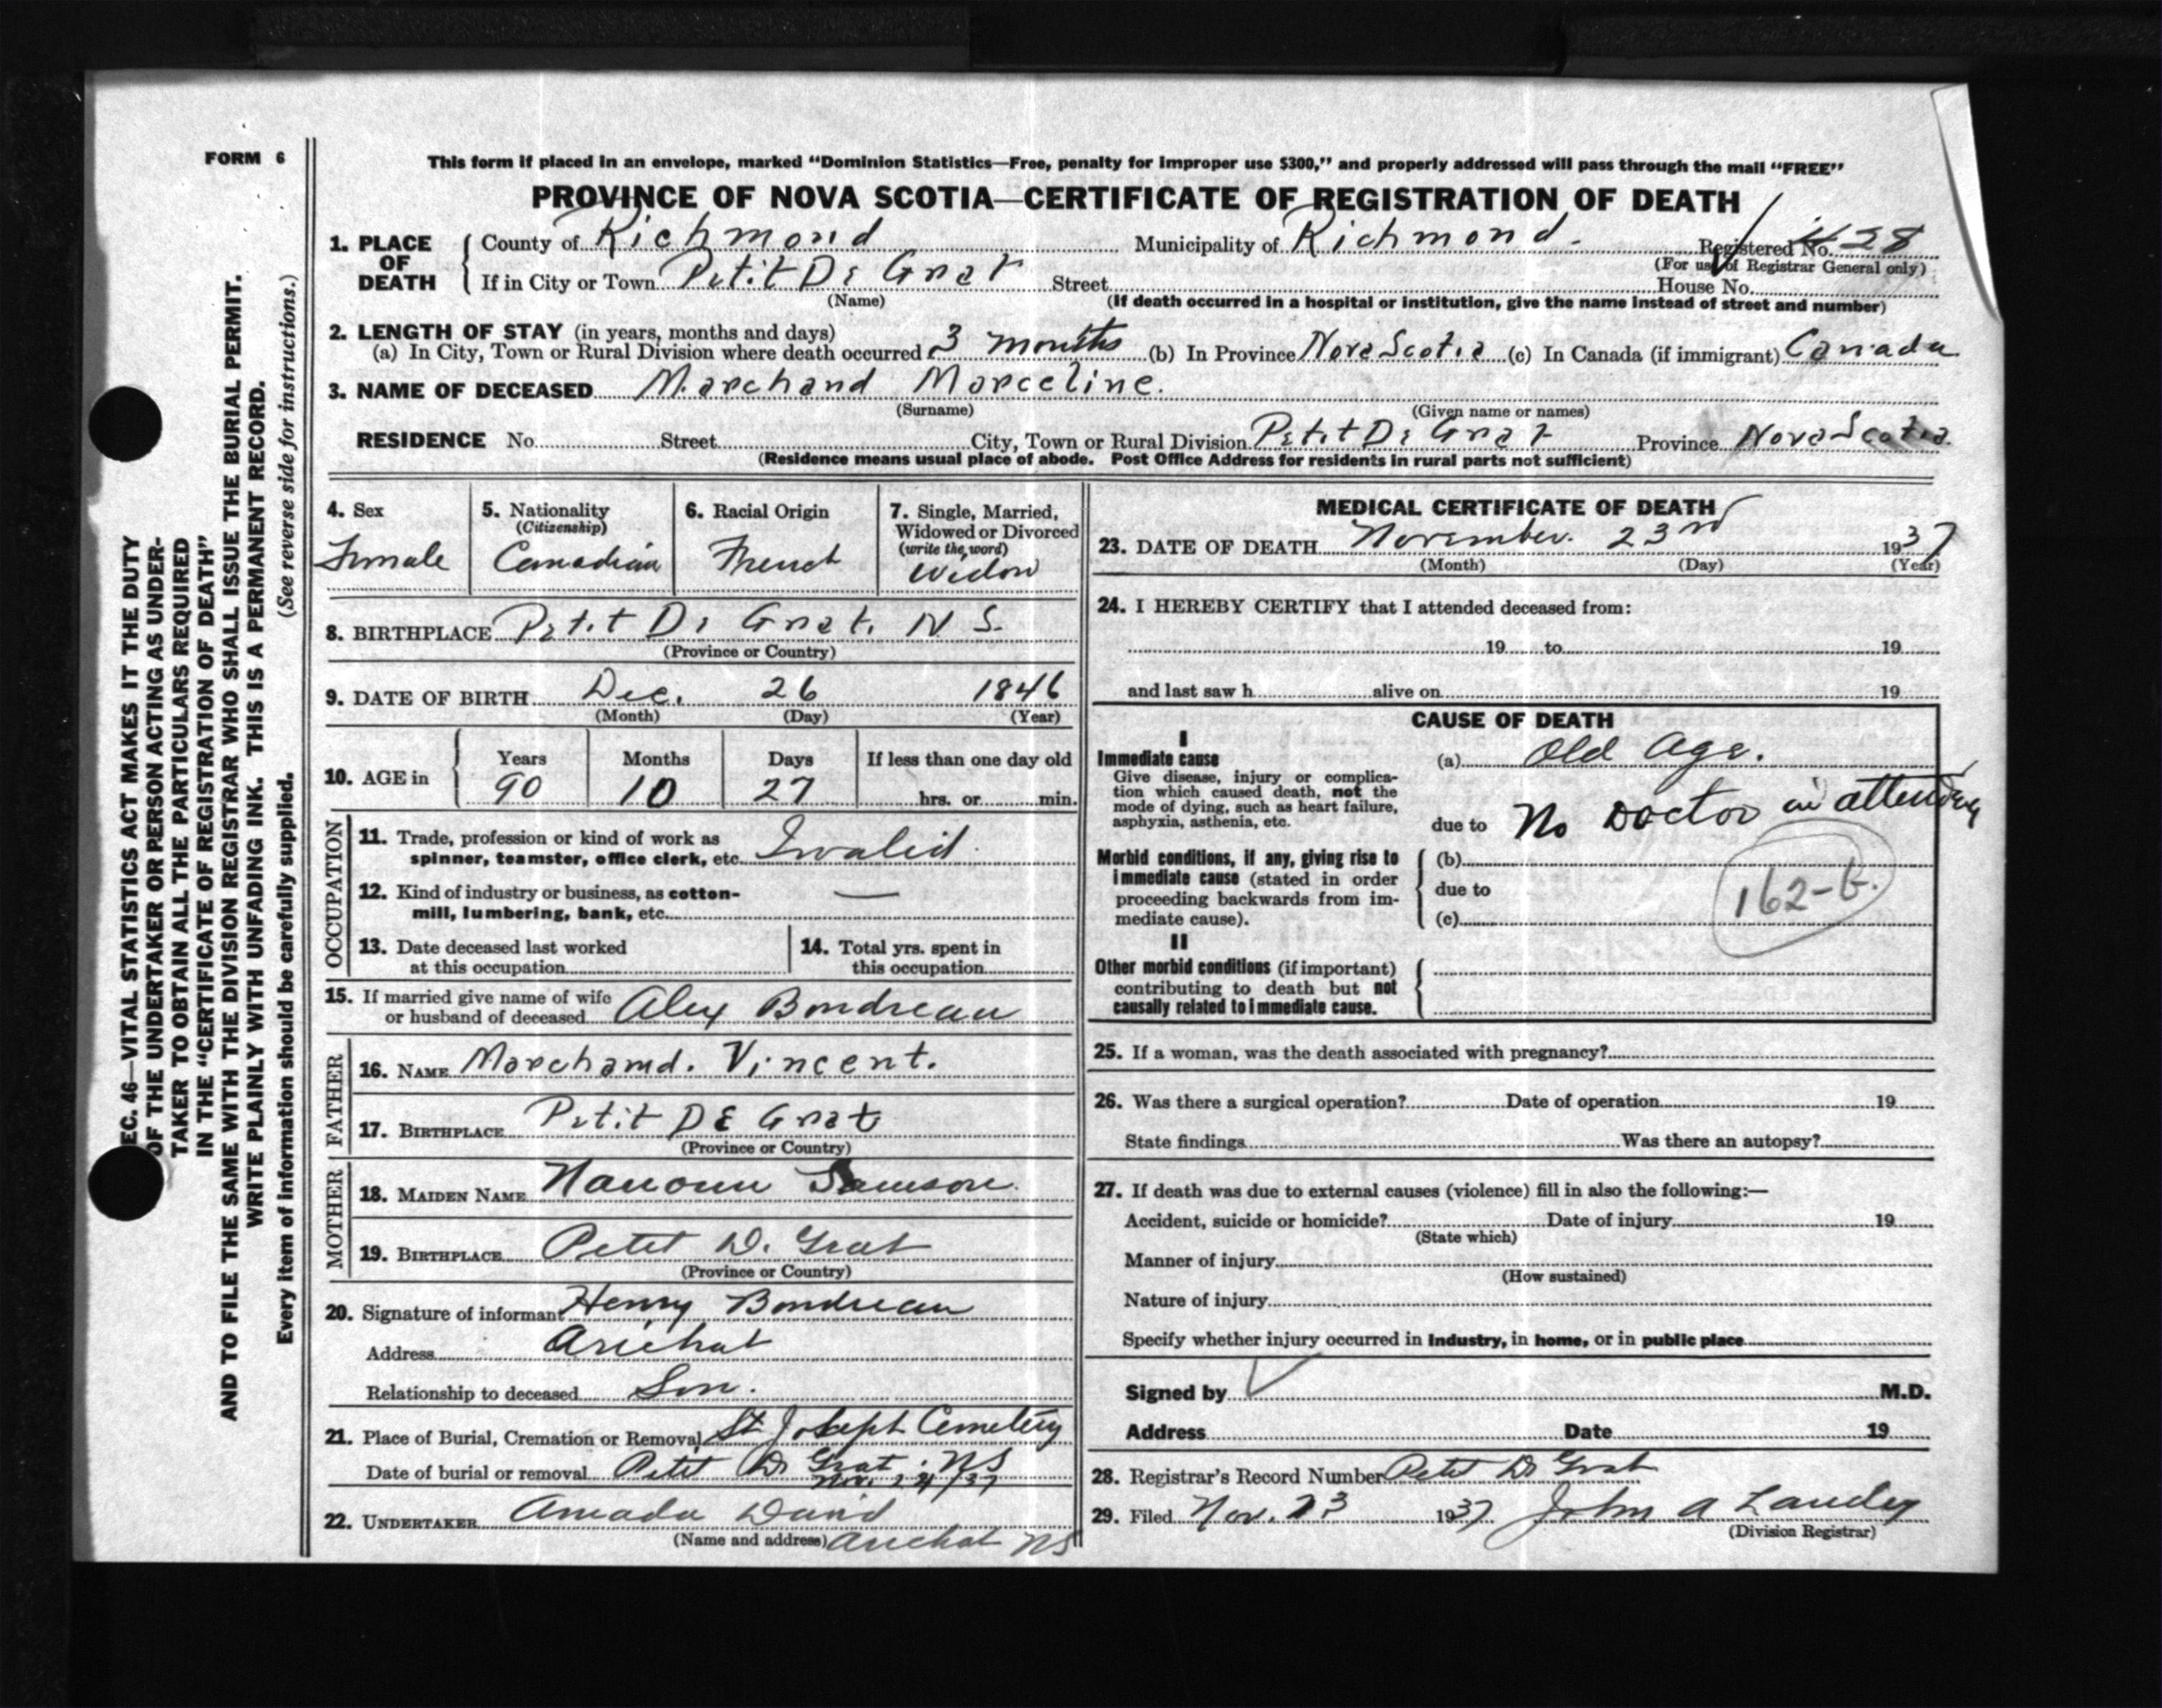 FORM 6
This form if placed in an envelope, marked "Dominion Statistics—Free, penalty for improper use $300," and properly addressed will pass through the mail "FREE"
PROVINCE OF NOVA SCOTIA—CERTIFICATE OF REGISTRATION OF DEATH
1. PLACE OF DEATH County of Richmond Municipality of Richmond. Registered No. 28
(For use of Registrar General only)
If in City or Town Petit De Grat Street House No.
(Name) (If death occurred in a hospital or institution, give the name instead of street and number)
2. LENGTH OF STAY (in years, months and days)
(a) In City, Town or Rural Division where death occurred 3 months (b) In Province Nova Scotia (c) In Canada (if immigrant) Canada
3. NAME OF DECEASED Marchand Marceline.
(Surname) (Given name or names)
RESIDENCE No. Street City, Town or Rural Division Petit De Grat Province Nova Scotia.
(Residence means usual place of abode. Post Office Address for residents in rural parts not sufficient)
4. Sex
Female
5. Nationality
(Citizenship)
Canadian
6. Racial Origin
French
7. Single, Married,
Widowed or Divorced
(write the word)
Widow
8. BIRTHPLACE Petit De Grat. N S.
(Province or Country)
9. DATE OF BIRTH Dec. 26 1846
(Month) (Day) (Year)
10. AGE in Years Months Days If less than one day old
90 10 27 hrs. or min.
OCCUPATION
11. Trade, profession or kind of work as
spinner, teamster, office clerk, etc. Invalid.
12. Kind of industry or business, as cotton-
mill, lumbering, bank, etc. —
13. Date deceased last worked
at this occupation
14. Total yrs. spent in
this occupation
15. If married give name of wife
or husband of deceased Alex Boudreau
FATHER
16. NAME Marchand. Vincent.
17. BIRTHPLACE Petit DE Grat
(Province or Country)
MOTHER
18. MAIDEN NAME Samson.
19. BIRTHPLACE Petit D. Grat
(Province or Country)
20. Signature of informant Henry Boudreau
Address Arichat
Relationship to deceased Son.
21. Place of Burial, Cremation or Removal St Joseph Cemetery
Date of burial or removal Petit De Grat. NS
Nov. 24/37
22. UNDERTAKER Amada David
(Name and address) Arichat NS
MEDICAL CERTIFICATE OF DEATH
23. DATE OF DEATH November. 23rd 1937
(Month) (Day) (Year)
24. I HEREBY CERTIFY that I attended deceased from:
19 to 19
and last saw h alive on 19
CAUSE OF DEATH
I
Immediate cause
Give disease, injury or complica-
tion which caused death, not the
mode of dying, such as heart failure,
asphyxia, asthenia, etc.
(a) Old Age.
due to No Doctor in attending
Morbid conditions, if any, giving rise to
immediate cause (stated in order
proceeding backwards from im-
mediate cause).
(b)
due to
(c)
162-b.
II
Other morbid conditions (if important)
contributing to death but not
causally related to immediate cause.
25. If a woman, was the death associated with pregnancy?
26. Was there a surgical operation? Date of operation 19
State findings Was there an autopsy?
27. If death was due to external causes (violence) fill in also the following:—
Accident, suicide or homicide? Date of injury 19
(State which)
Manner of injury
(How sustained)
Nature of injury
Specify whether injury occurred in industry, in home, or in public place
Signed by M.D.
Address Date 19
28. Registrar's Record Number Petit De Grat
29. Filed Nov. 23 1937 John A
(Division Registrar)
EC. 46—VITAL STATISTICS ACT MAKES IT THE DUTY
OF THE UNDERTAKER OR PERSON ACTING AS UNDER-
TAKER TO OBTAIN ALL THE PARTICULARS REQUIRED
IN THE "CERTIFICATE OF REGISTRATION OF DEATH"
AND TO FILE THE SAME WITH THE DIVISION REGISTRAR WHO SHALL ISSUE THE BURIAL PERMIT.
WRITE PLAINLY WITH UNFADING INK. THIS IS A PERMANENT RECORD.
Every item of information should be carefully supplied. (See reverse side for instructions.)